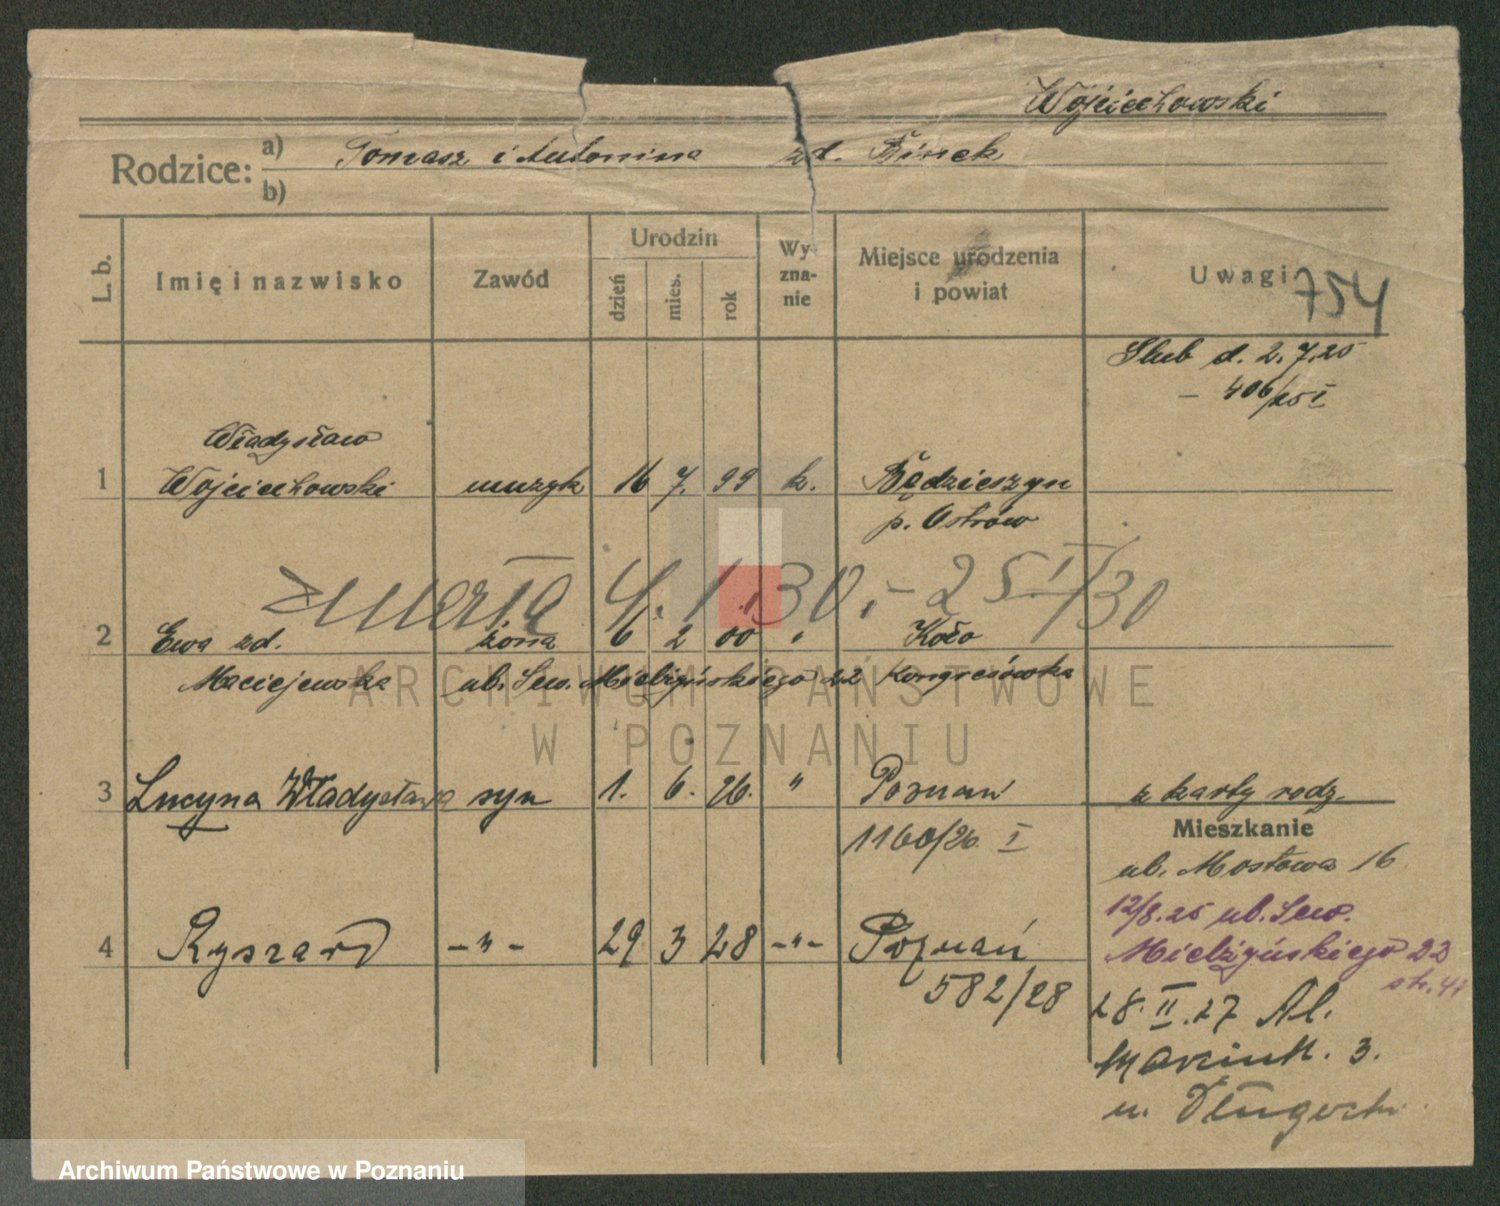 Wojciechowski
Rodzice: a) Tomasz i Antonina zd. Binek
b)
L. b. Imię i nazwisko Zawód Urodzin dzień mies. rok Wyznanie Miejsce urodzenia i powiat Uwagi 754
Ślub d. 2.7.25
– 406/25 I
Władysław
1 Wojciechowski muzyk 16 7. 99 k. Będzieszyn
p. Ostrów
zmarła 4.1.30.– 25 I/30
2 Ewa zd. żona 6 2 00 " Koło
Maciejewska ul. Sew. Mielżyńskiego 22 Kongresówka
ARCHIWUM PAŃSTWOWE
W POZNANIU
3 Lucyna Władysława syn 1. 6. 26. " Poznań z karty rodz.
1160/26 I
Mieszkanie
ul. Mostowa 16
12/8.25 ul. Sew.
4 Ryszard –"– 29 3 28 –"– Poznań Mielżyńskiego 23
582/28 str. 41
28.II.27 Al.
Marcink. 3.
Archiwum Państwowe w Poznaniu